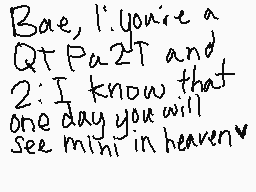 Bae, 1: you're a
QT Pa2T and
2: I know that
one day you will
see mini in heaven♥